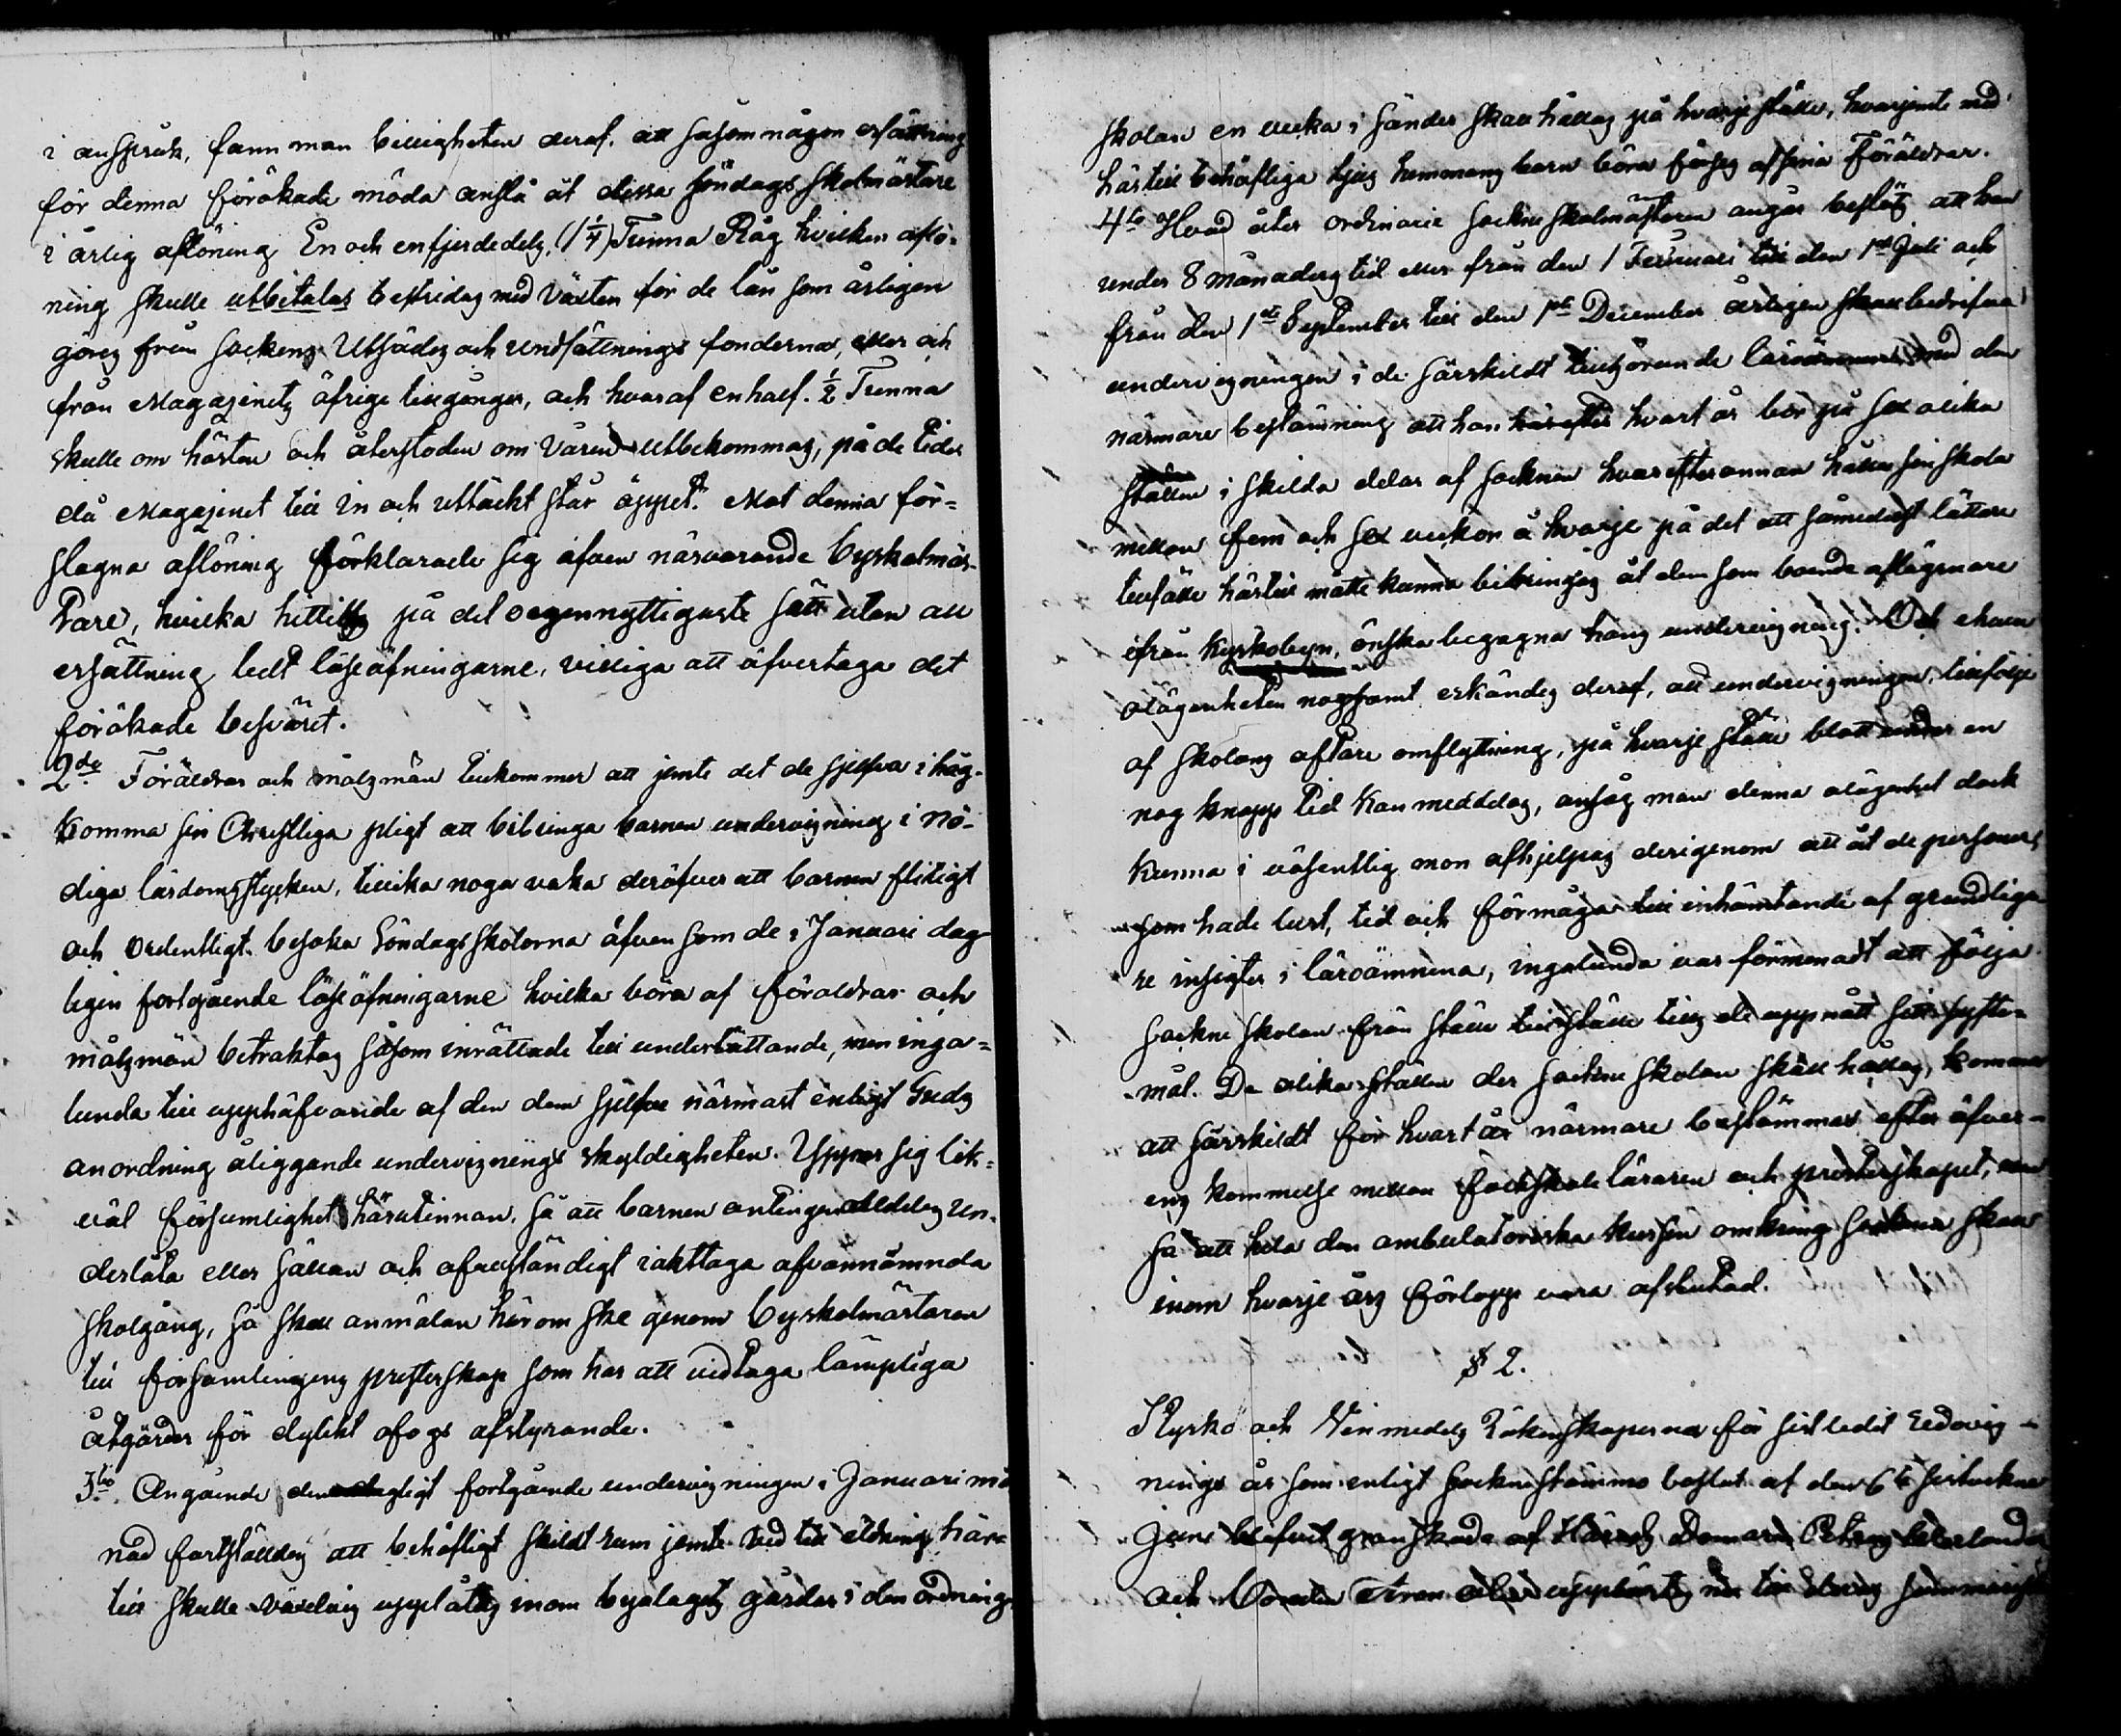 i anspråk, fann man billigheten deraf, att såsom någon ersättning
för denna förökade möda anslå åt dessa söndags skolmästare
i årlig aflöning En och en fjerdedels (1 1/4) Tunna Råg hvilken aflö-
ning skulle utbetalas bestridas med växten för de lån som årligen
göras från Sockens Utsädes och undsättnings fonderna, eller och
från Magazinets öfrige tillgångar, och hvaraf en half. 1/2 Tunna
skulle om hösten och återstoden om våren utbekommas, på de tider
då Magazinet till in och uttäckt står öppet. Mot denna för-
slagna aflöning förklarade sig äfven närvarande byskolmäs-
tare, hvilka hittills på det oegennyttigaste sätt utan all
ersättning ledt läseöfningarne, villiga att öfvertaga det
förökade besväret.
2do Föräldrar och målsmän tillkommer att jemte det de sjelfva i håg-
komma sin Christliga pligt att bibringa barnen undervisning i nö-
diga lärdomsstycken, tillika noga vaka deröfver att barnen flitigt
och ordentligt besöka Söndagsskolorna äfven som de i Januari dag-
ligen fortgående läseöfningarne hvilka böra af föräldrar och
målsmän betraktas såsom inrättade till underlättande, men inga-
lunda till upphäfvande af den dem sjelfve närmast enligt Guds
anordning åliggande undervisnings skyldigheten. Yppar sig lik-
väl försumlighet härutinnan, så att barnen antingen alldeles un-
derlåta eller sällan och ofullständigt iakttaga ofvannämnda
skolgång, så skall anmälan härom ske genom byskolmästaren
till församlingens presterskap som har att vidtaga lämpliga
åtgärder för dylikt ofogs afstyrande.
3tio Angående den dagligt fortgående undervisningen i Januari må-
nad fastställdes att behöfligt skildt rum jemte ved till eldning här-
till skulle växelvis upplåtas inom byalagets gårdar i den ordning
skolan en vecka i sänder skall hållas på hvarje ställe, hvarjemte med
härtill behöfliga ljus hemmans barn böra förses af sina Föräldrar.
4to Hvad åter ordinarie Sockneskolmästaren angår beslöts att han
under 8 månaders tid eller från den 1 Februari till den 1sta Juli och
från den 1sta September till den 1sta December årligen skall bedrifva
undervisningen i de särskildt tillhörande läroämnena med den
närmare bestämning att han härefter hvart år bör på sex olika
ställen i skilda delar af Socknen hvar efter annan hålla sin skola
mellan fem och sex veckor å hvarje på det att såmedelst lättare
tillfälle härtill måtte kunna bibringas åt dem som boende aflägsnare
ifrån Kyrkobyn, önska begagna hans undervisning. Och ehuru
olägenheten nogsamt erkändes deraf, att undervisningen, tillfölje
af skolans oftare omflyttning, på hvarje ställe blott under en
nog knapp tid kan meddelas, ansåg man denna olägenhet dock
kunna i väsentlig mon afhjelpas derigenom att åt de personer
som hade lust, tid och förmåga till inhämtande af grundliga-
re insigter i läroämnena, ingalunda var förmenadt att följa
Sockneskolan från ställe till ställe tills de uppnått sitt syfte-
mål. De olika ställen der Sockneskolan skall hållas, kommer
att särskildt för hvart år närmare bestämmas efter öfver-
ens kommelse mellan läraren och presterskapet, men
så att hela den ambulatoriska kursen omkring Socknen skall
inom hvarje års förlopp vara afslutad.
§ 2.
Kyrko och Vinmedels Räkenskaperna för sistledit redovis-
nings år som enligt Sockne stämmo beslut af den 6te sistlidne
Juni blifvit granskade af Härads Domaren
och